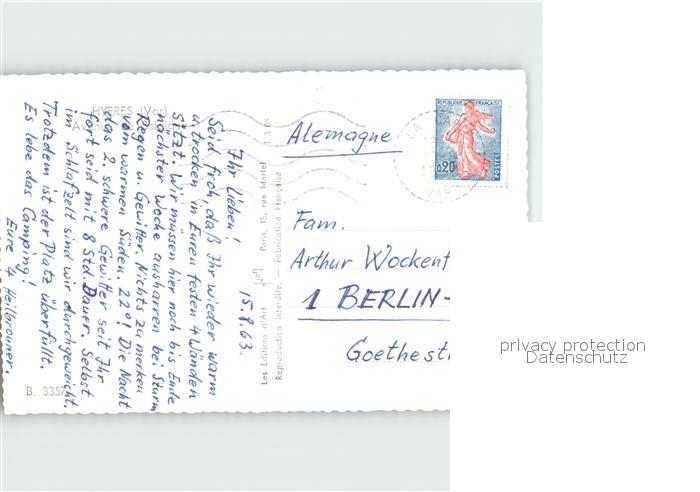 HYERES (Var)
15.9.63.
Ihr Lieben!
Seid froh, daß Ihr wieder warm
u. trocken in Euren festen 4 Wänden
sitzt. Wir müssen hier noch bis Ende
nächster Woche ausharren bei Sturm
Regen u. Gewitter. Nichts zu merken
vom warmen Süden. 22°! Die Nacht
das 2. schwere Gewitter seit Ihr
fort seid mit 8 Std. Dauer. Selbst
im Schlafzelt sind wir durchgeweicht.
Trotzdem ist der Platz überfüllt.
Es lebe das Camping!
Eure 4 Heilbronner.
B. 3357
Les Editions d'Art
Paris, 15, rue Martel
Reproduction Interdite. — Fabrication Française
REPUBLIQUE FRANÇAISE
0,20
POSTES
Alemagne
Fam.
Arthur Wockenf
1 BERLIN-
Goethestr
privacy protection
Datenschutz